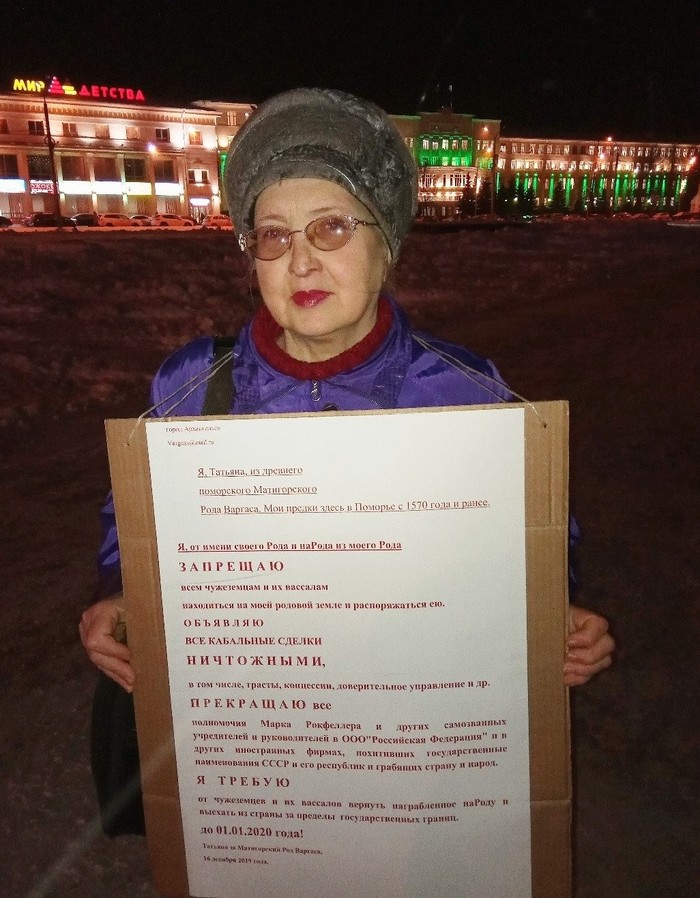 МИР ДЕТСТВА
город Архангельск
Я, Татьяна, из древнего
поморского Матигорского
Рода Варгаса. Мои предки здесь в Поморье с 1570 года и ранее.
Я, от имени своего Рода и наРода из моего Рода
ЗАПРЕЩАЮ
всем чужеземцам и их вассалам
находиться на моей родовой земле и распоряжаться ею.
ОБЪЯВЛЯЮ
ВСЕ КАБАЛЬНЫЕ СДЕЛКИ
НИЧТОЖНЫМИ,
в том числе, трасты, концессии, доверительное управление и др.
ПРЕКРАЩАЮ все
полномочия Марка Рокфеллера и других самозванных
учредителей и руководителей в ООО"Российская Федерация" и в
других иностранных фирмах, похитивших государственные
наименования СССР и его республик и грабящих страну и народ.
Я ТРЕБУЮ
от чужеземцев и их вассалов вернуть награбленное наРоду и
выехать из страны за пределы государственных границ.
до 01.01.2020 года!
Татьяна за Матигорский Род Варгаса.
16 декабря 2019 года.